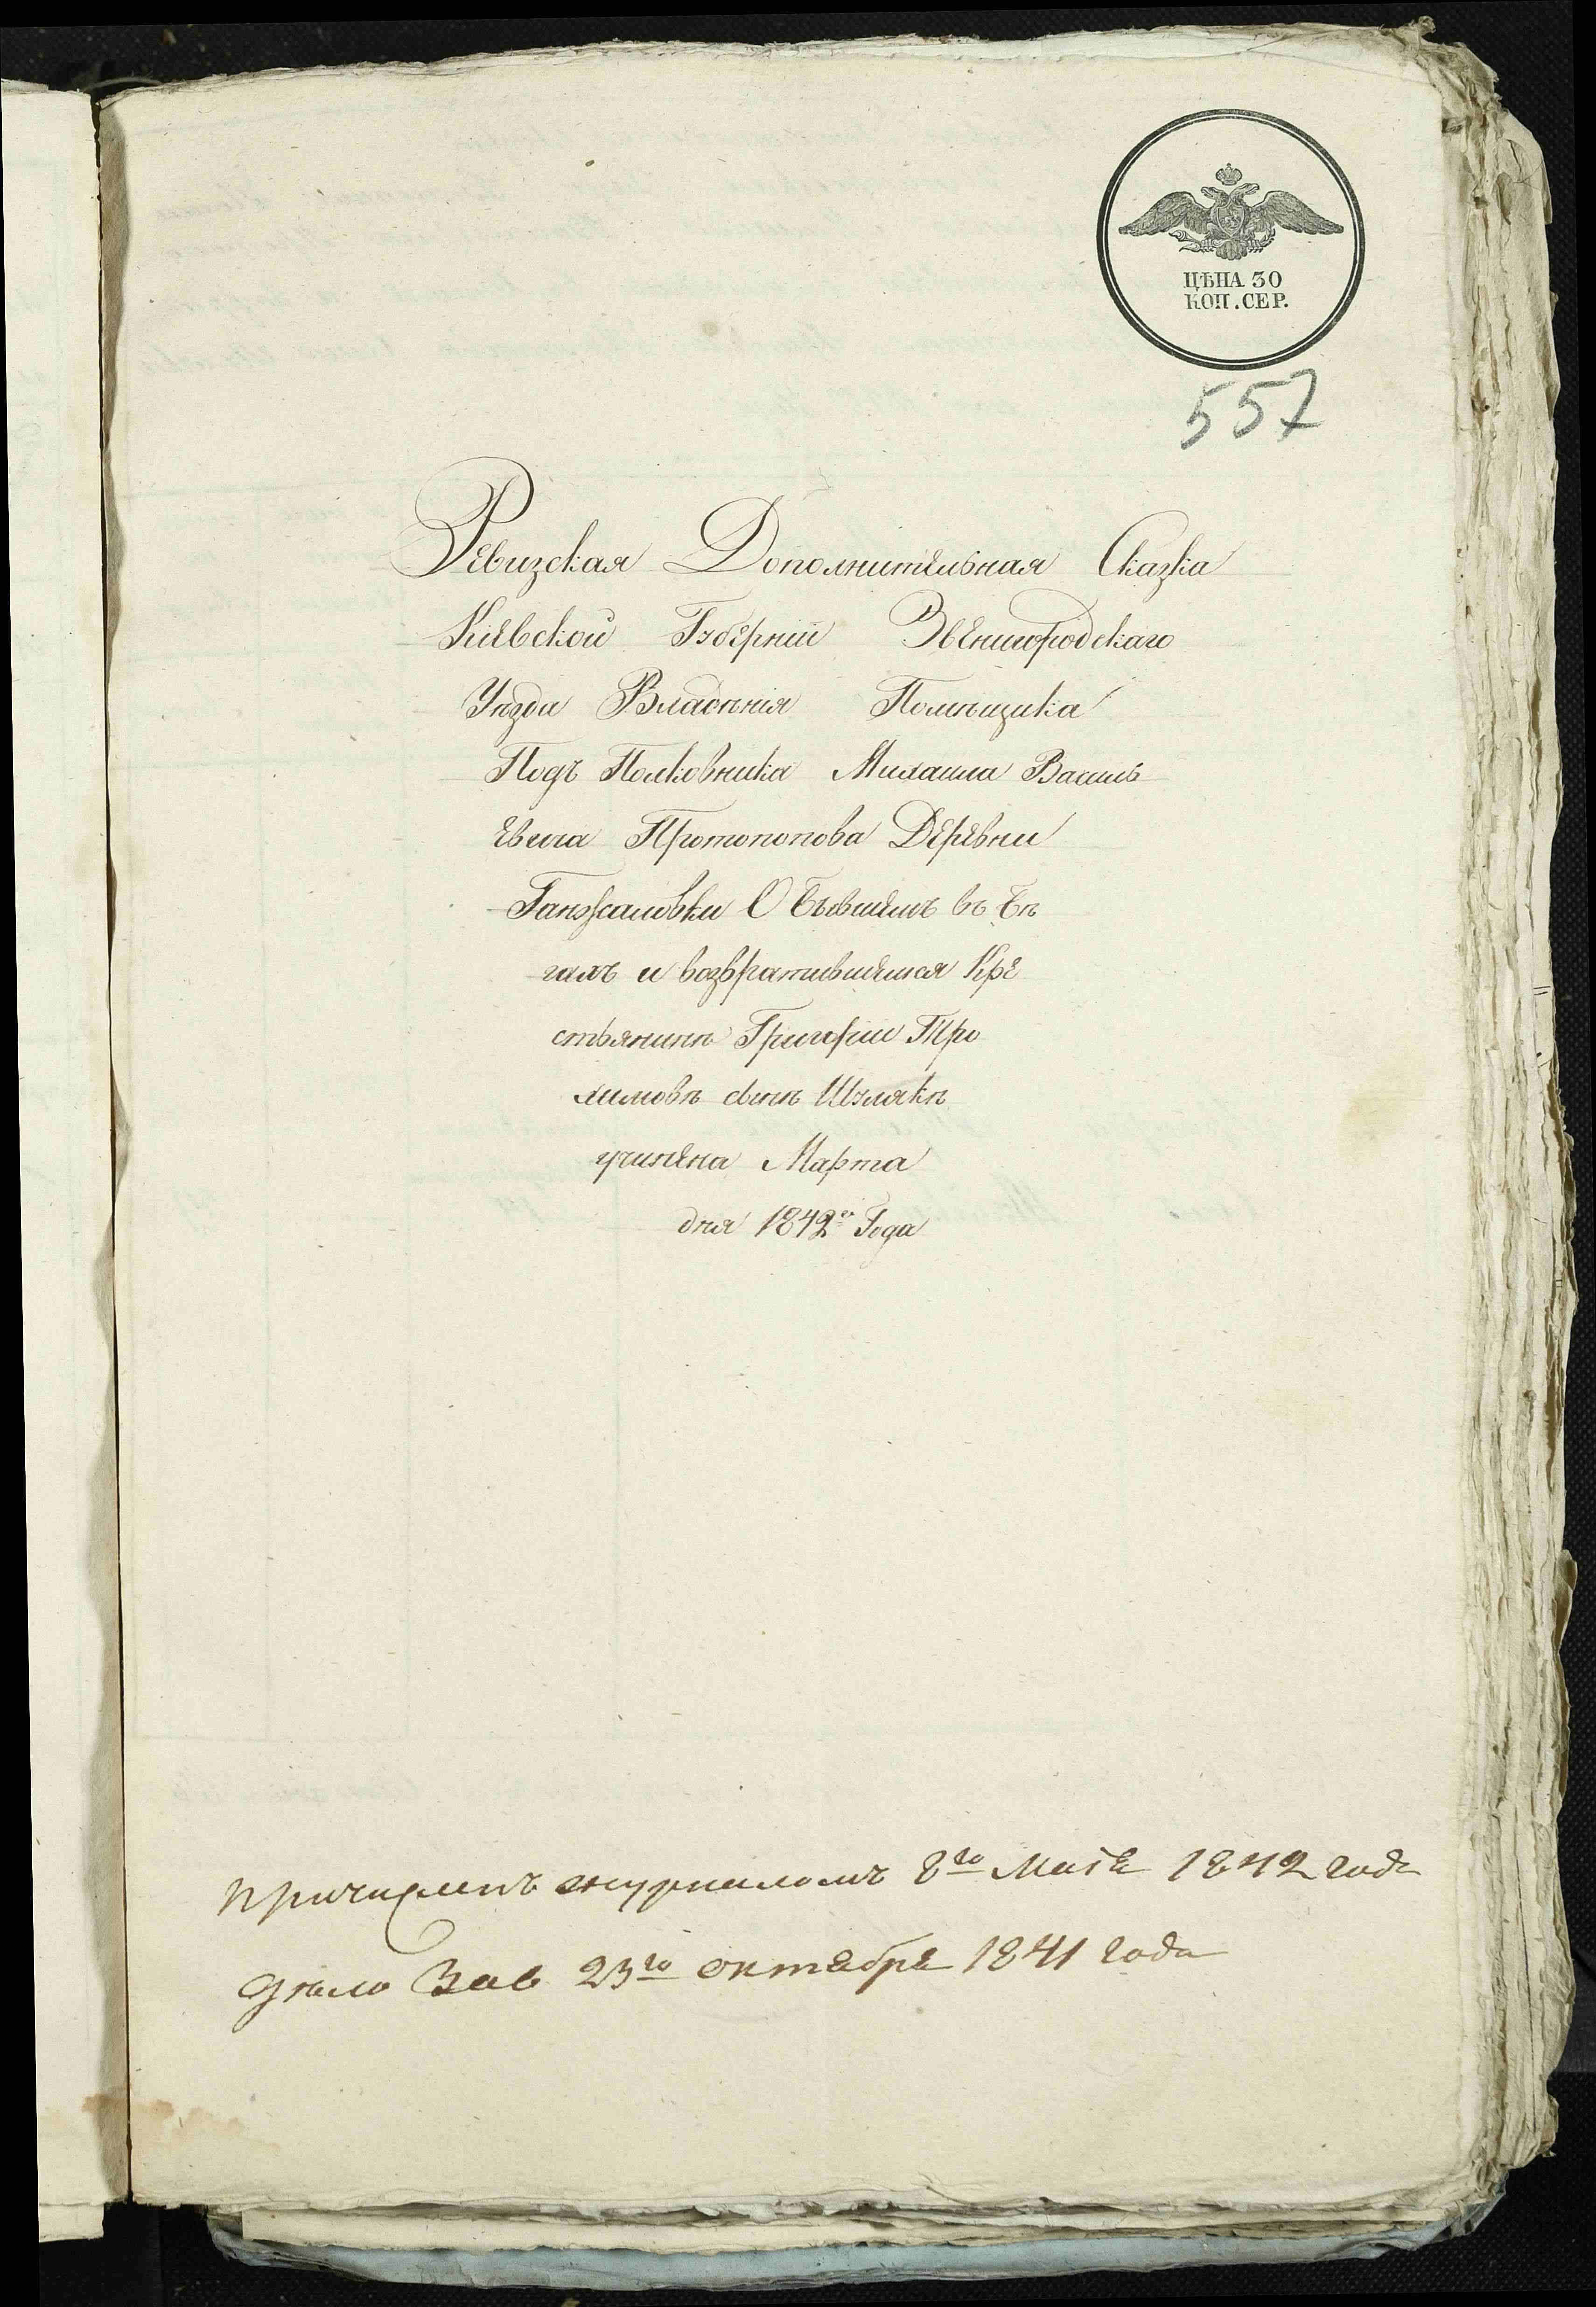 ЦѢНА 30
КОП. СЕР.
557
Ревизская Дополнительная Сказка
Кіевской Губерніи Звенигородскаго
Уѣзда Владѣнія Помѣщика
Подъ Полковника Михаила Василь
евича Протопопова Деревни
Ганжаловки О бывшемъ въ бѣ
гахъ и возвратившемся Кре
стьянинѣ Григоріи Тро
химовѣ сынѣ Шулякѣ
учинена Марта
дня 1842го Года
Причисленъ журналомъ 8го Маія 1842 года
Дѣло Зав 23го октября 1841 года